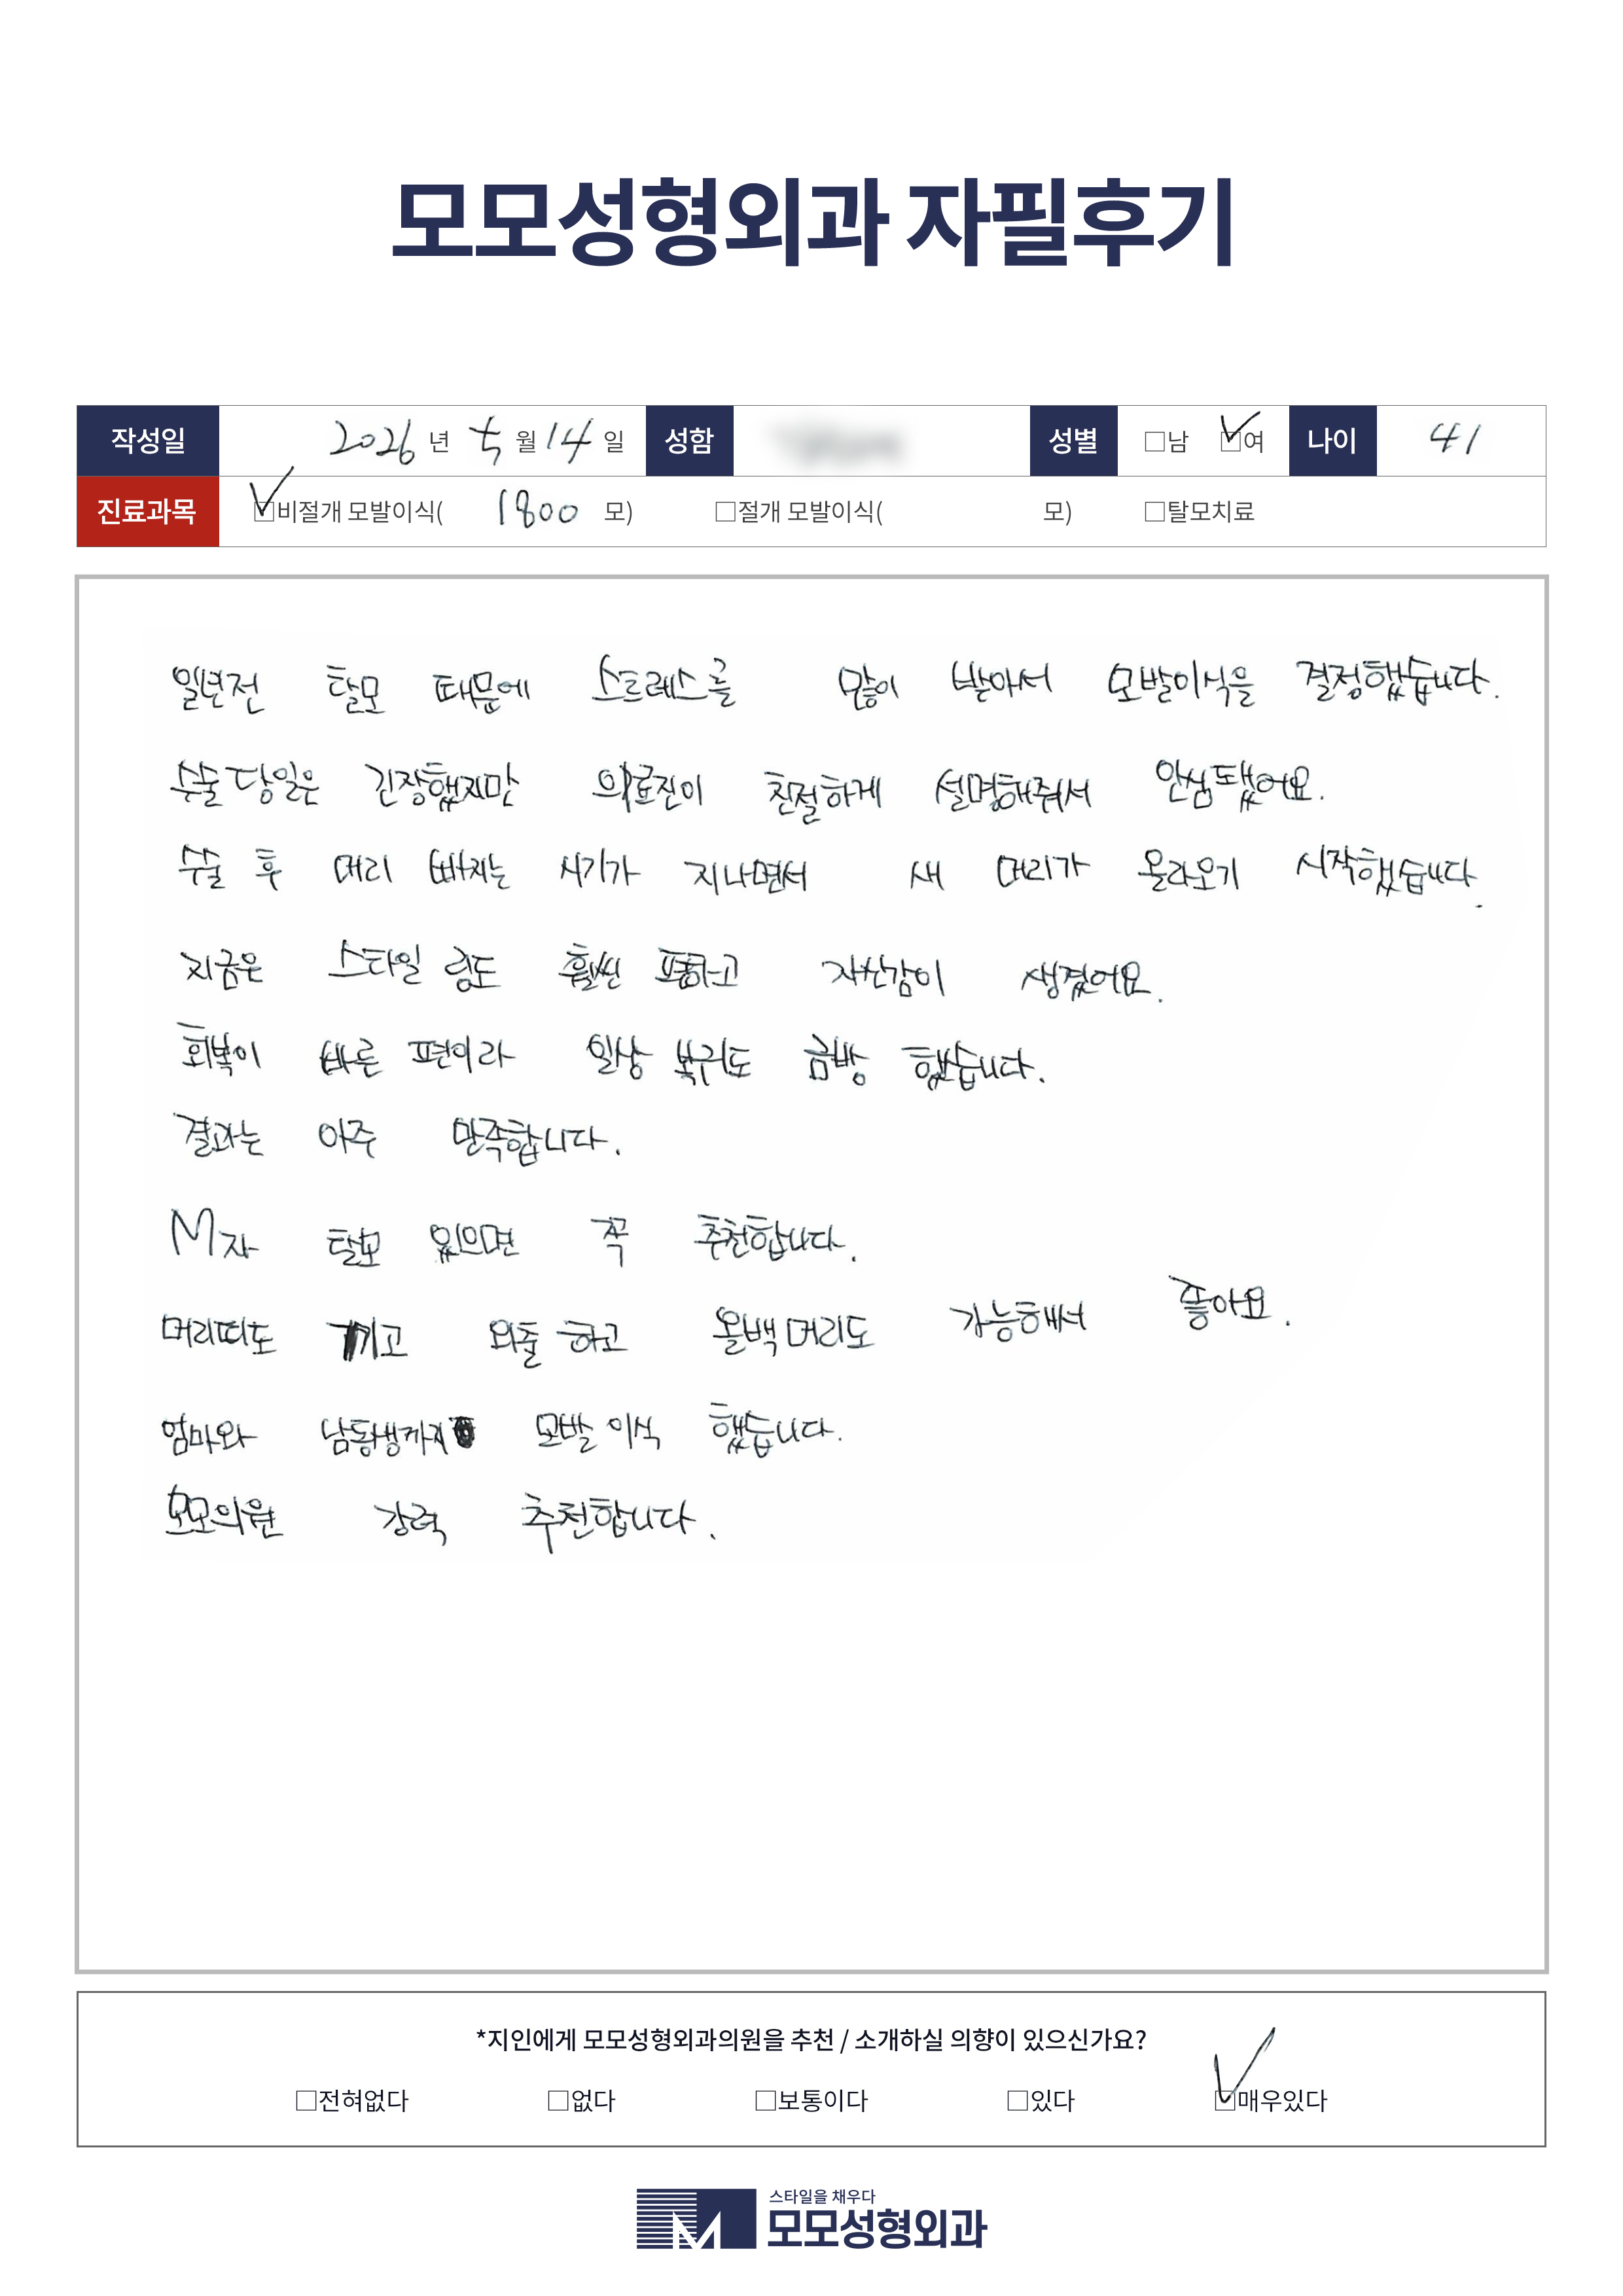 모모성형외과 자필후기
작성일 2026 년 월 14 일 성함 성별 □남 □여 나이 41
진료과목 □비절개 모발이식( 1800 모) □절개 모발이식( 모) □탈모치료
일년전 탈모 때문에 스트레스를 많이 받아서 모발이식을 결정했습니다.
수술당일은 긴장했지만 의료진이 친절하게 설명해줘서 안심됐어요.
수술 후 머리 빠지는 시기가 지나면서 새 머리가 올라오기 시작했습니다.
지금은 스타일링도 훨씬 편하고 자신감이 생겼어요.
회복이 빠른 편이라 일상 복귀도 금방 했습니다.
결과는 아주 만족합니다.
M자 탈모 있으면 꼭 추천합니다.
머리띠도 끼고 외출하고 올백머리도 가능해서 좋아요.
엄마와 남동생까지 모발이식 했습니다.
모모의원 강력 추천합니다.
*지인에게 모모성형외과의원을 추천 / 소개하실 의향이 있으신가요?
□전혀없다 □없다 □보통이다 □있다 □매우있다
스타일을 채우다
모모성형외과